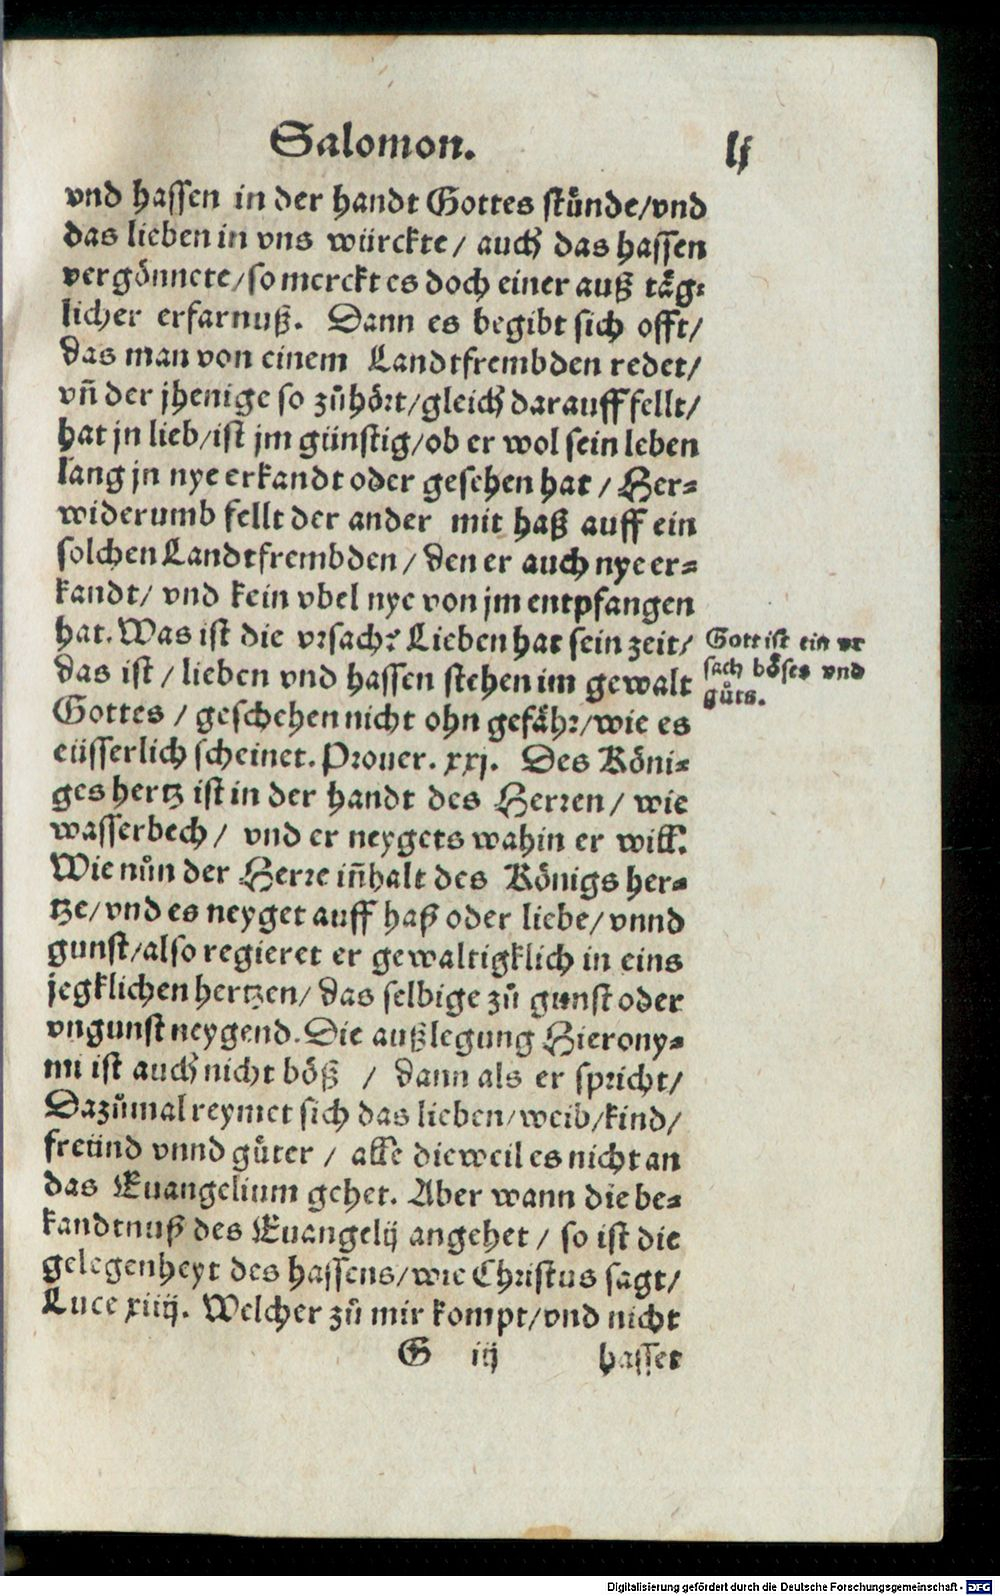 Salomon. lj
vnd hassen in der handt Gottes stünde/vnd
das lieben in vns würckte/ auch das hassen
vergönnete/so merckt es doch einer auß täg⸗
licher erfarnuß. Dann es begibt sich offt/
das man von einem Landtfrembden redet/
vñ der jhenige so zůhört/gleich darauff fellt/
hat jn lieb/ist jm günstig/ob er wol sein leben
lang jn nye erkandt oder gesehen hat / Her⸗
widerumb fellt der ander mit haß auff ein
solchen Landtfrembden/ den er auch nye er⸗
kandt/ vnd kein vbel nye von jm entpfangen
hat. Was ist die vrsach? Lieben hat sein zeit/
das ist / lieben vnd hassen stehen im gewalt
Gottes / geschehen nicht ohn gefähr/wie es
eüsserlich scheinet. Prouer. xxj. Des Köni⸗
ges hertz ist in der handt des Herren/ wie
wasserbech/ vnd er neygets wahin er will.
Wie nůn der Herre iñhalt des Königs her⸗
tze/vnd es neyget auff haß oder liebe/ vnnd
gunst/also regieret er gewaltigklich in eins
jegklichen hertzen/ das selbige zů gunst oder
vngunst neygend. Die außlegung Hierony⸗
mi ist auch nicht böß / dann als er spricht/
Dazůmal reymet sich das lieben/weib/kind/
freünd vnnd güter / alle dieweil es nicht an
das Euangelium gehet. Aber wann die be⸗
kandtnuß des Euangelij angehet / so ist die
gelegenheyt des hassens/wie Christus sagt/
Luce xiiij. Welcher zů mir kompt/vnd nicht
G iij hasset
Gott ist ein vr
sach böses vnd
gůts.
Digitalisierung gefördert durch die Deutsche Forschungsgemeinschaft - DFG